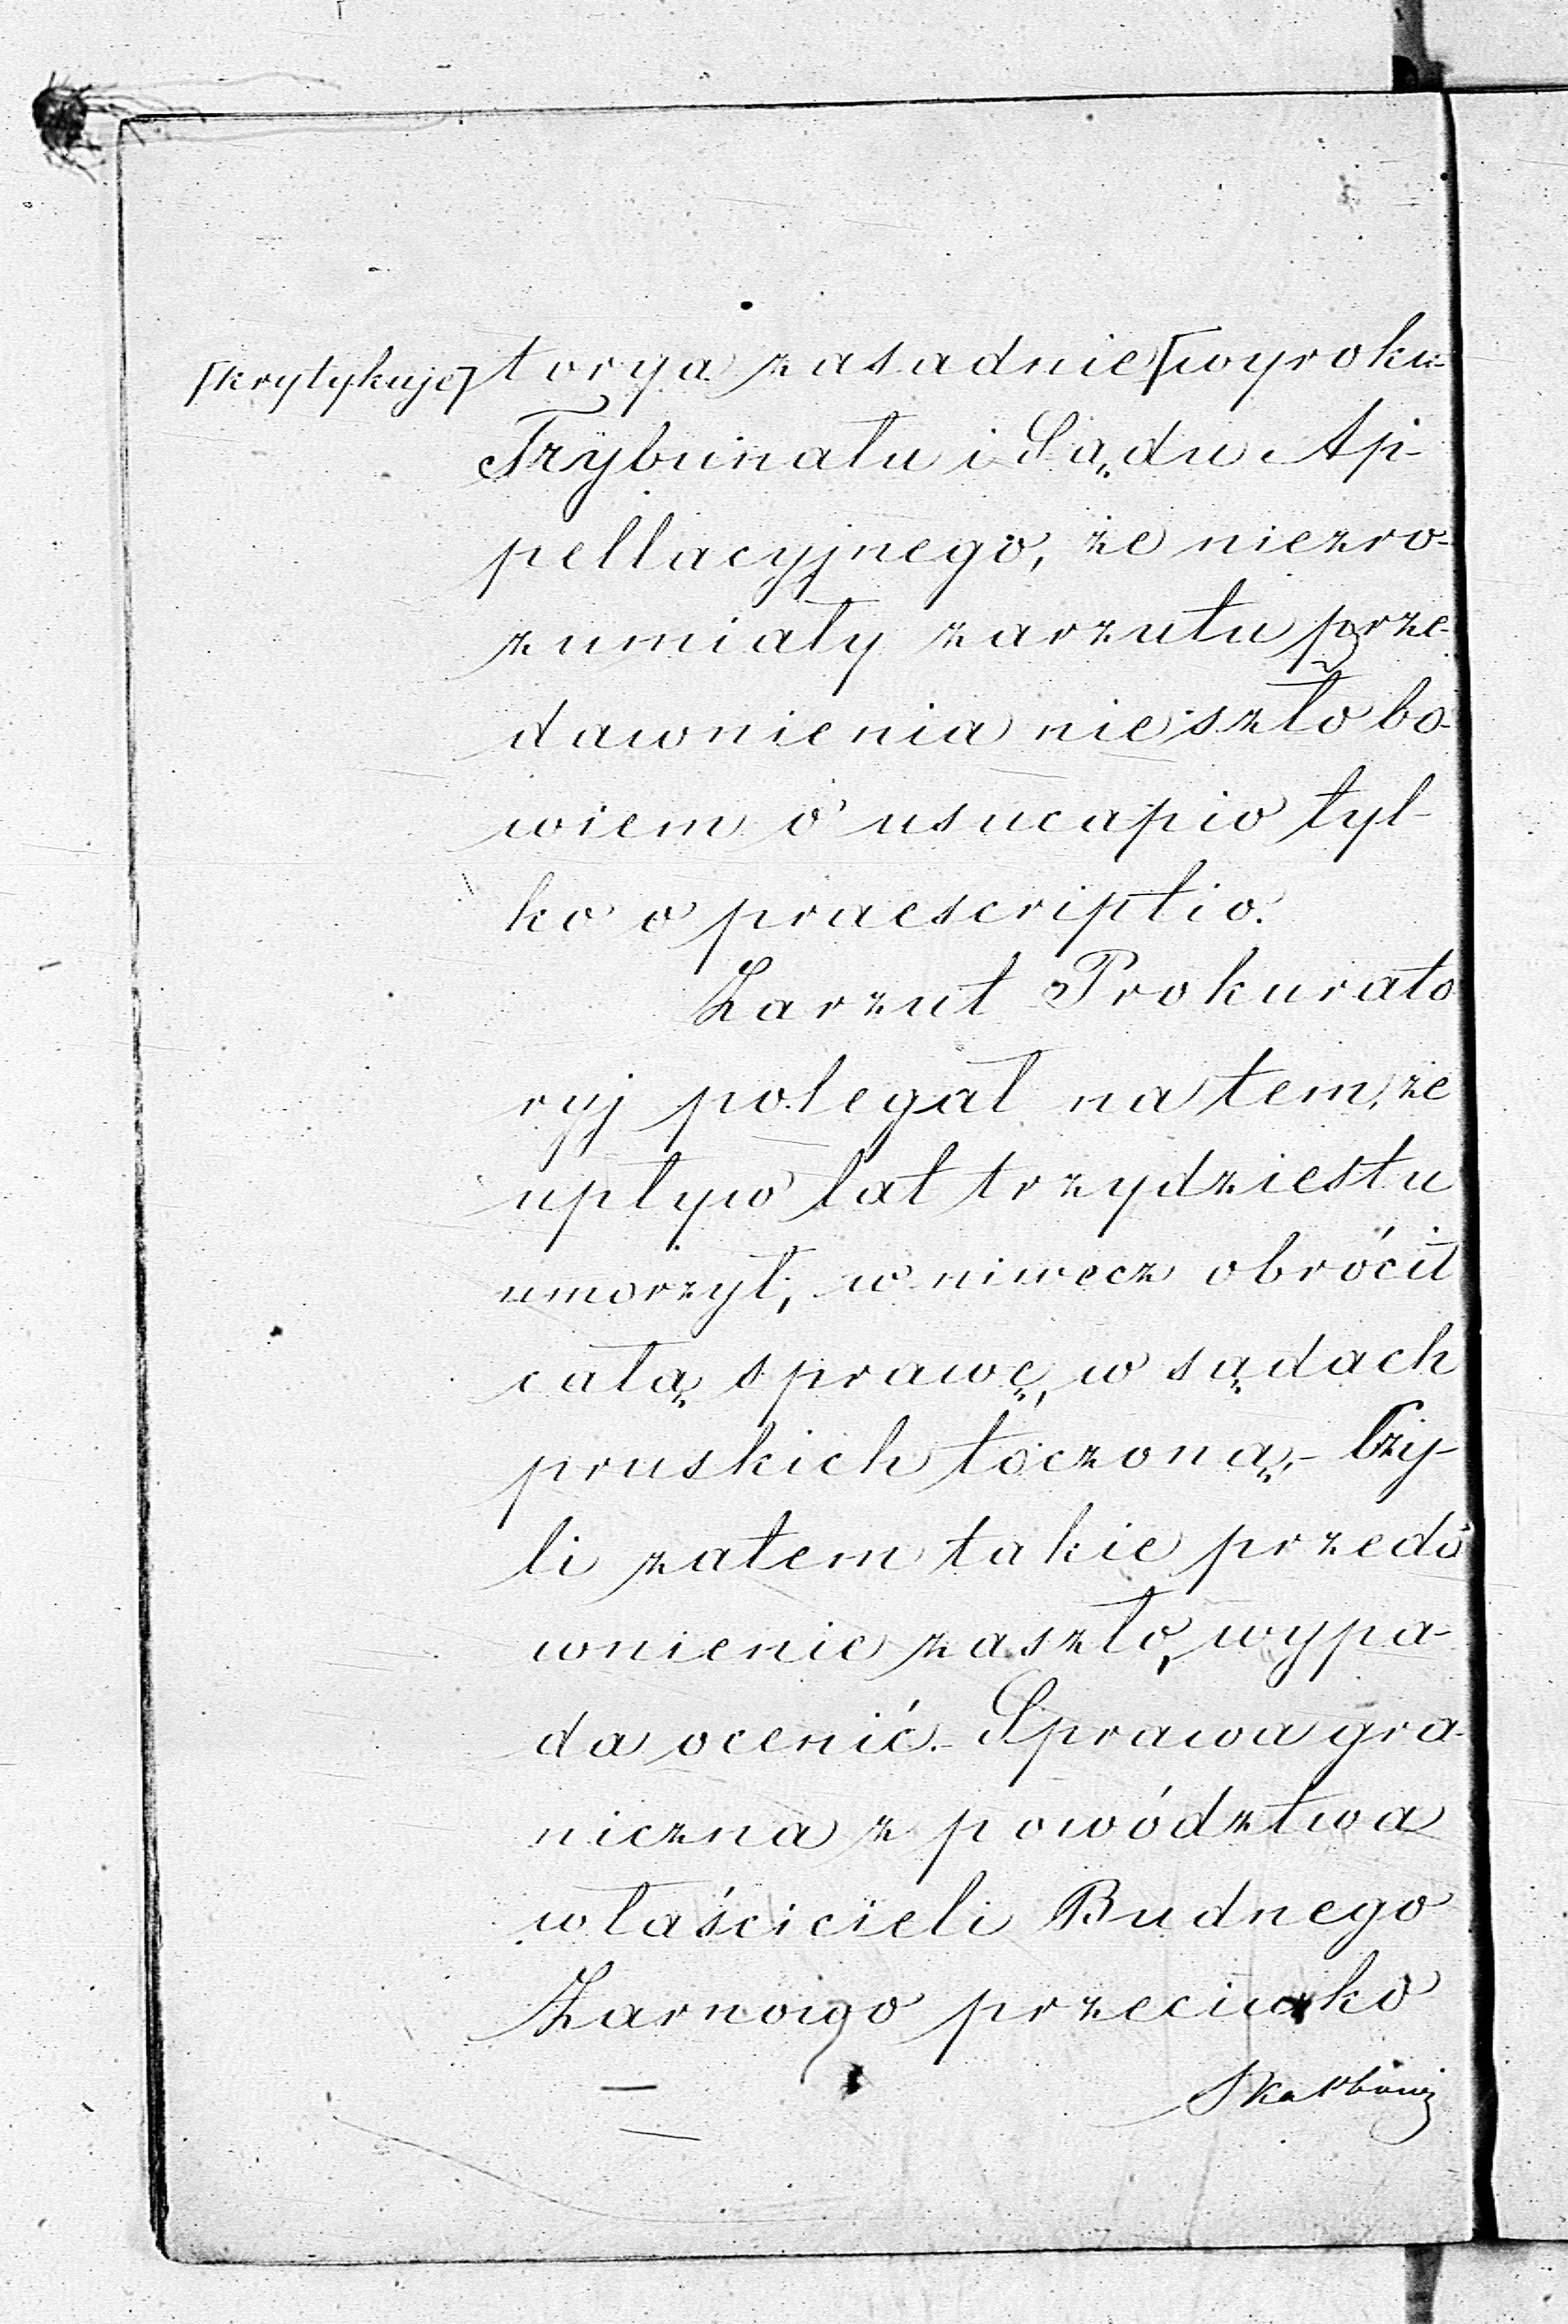 [krytykuje] torya zasadnie [wyroku
Trybunału i Sądu Ap-
pellacyjnego, że niezro-
zumiały zarzutu prze-
dawnienia nie szło bo-
wiem o usucapio tyl-
ko o praescriptio.
Zarzut Prokurato
ryj polegał na tem, że
upływ lat trzydziestu
umorzył, w niwecz obrócił
całą sprawę, w sądach
pruskich toczoną,- Czy-
li zatem takie przeda
wnienie zaszło, wypa-
da ocenić.- Sprawa gra-
niczna z powództwa
właścicieli Budnego
Żarnowgo przeciwko